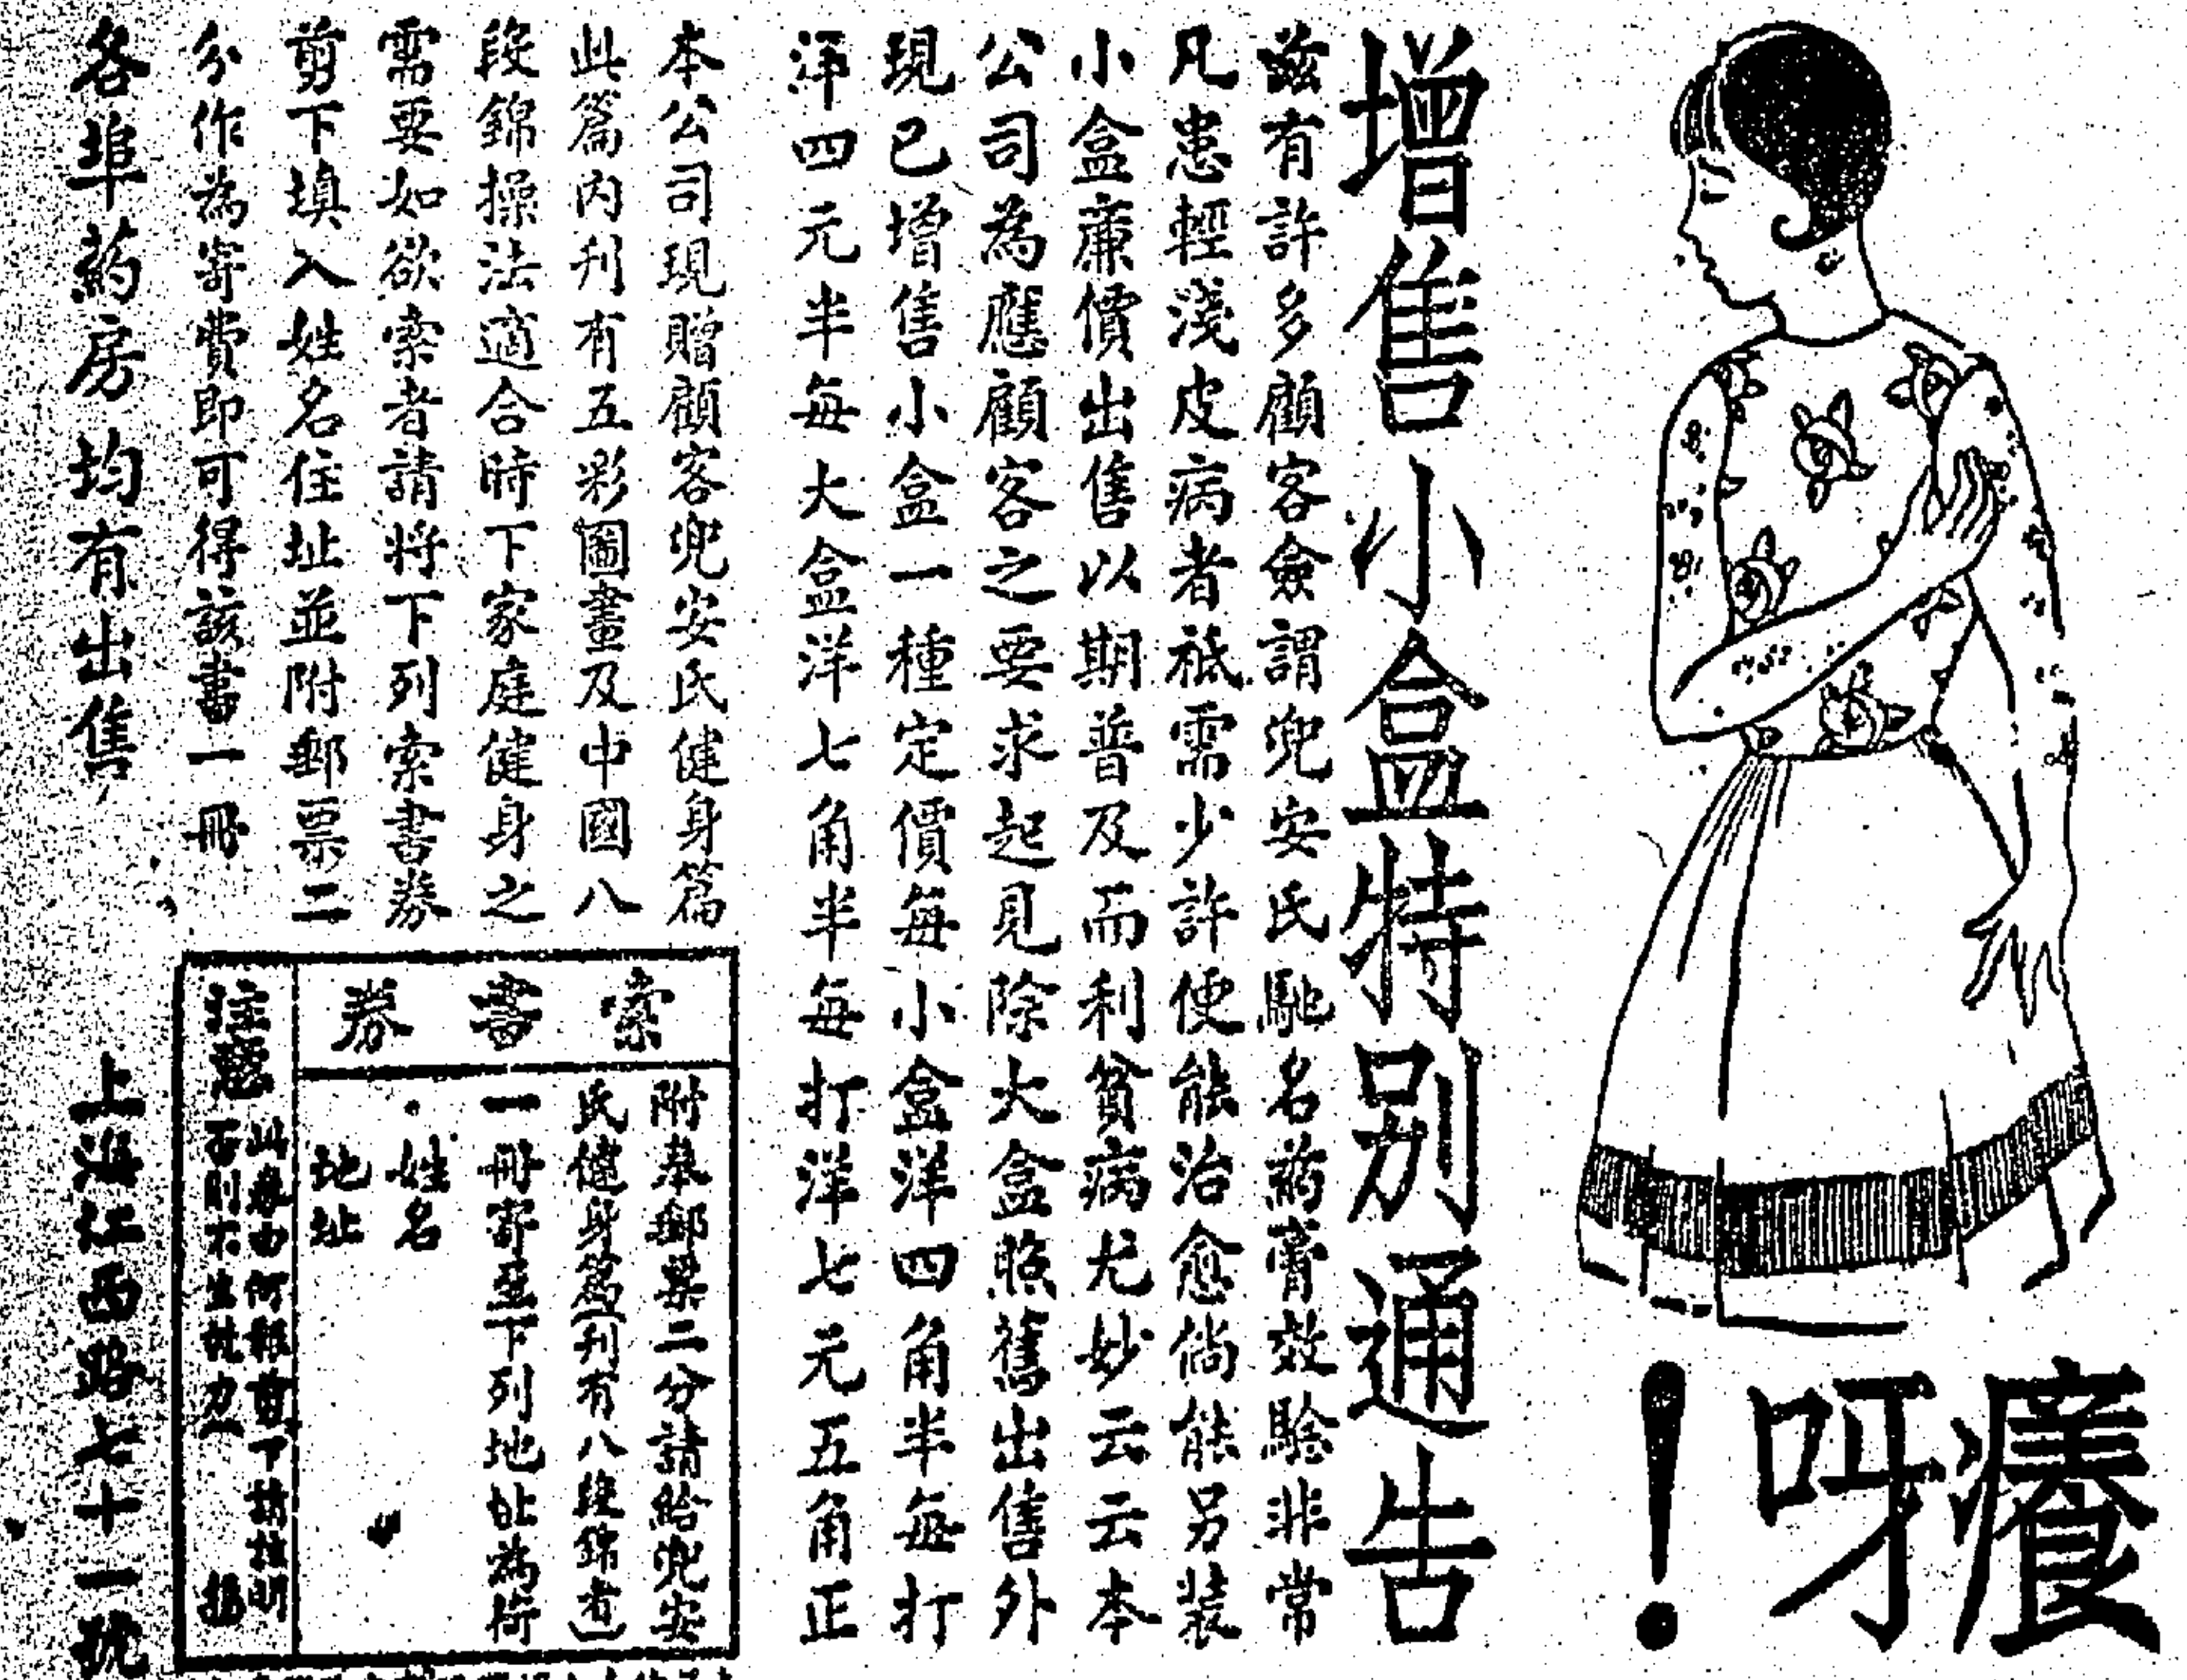 癢呀!
增售小盒特別通告
兹有許多顧客僉謂兜安氏馳名葯膏效驗非常
凡患輕淺皮病者祗需少許便能治愈倘能另裝
小盒廉價出售以期普及而利貧病尤妙云云本
公司為應顧客之要求起見除大盒照舊出售外
現已增售小盒一種定價每小盒洋四角半每打
洋四元半每大盒洋七角半每打洋七元五角正
本公司現贈顧客兜安氏健身篇
此篇內刋有五彩圖畫及中國八
段錦操法適合時下家庭健身之
需要如欲索者請將下列索書券
剪下填入姓名住址並附郵票二
分作為寄費即可得該書一冊
索書券
附奉郵票二分請給兜安
氏健身篇(刋有八段錦者)
一冊寄至下列地址為荷
姓名
地址
注意
此券由何報剪下請註明
否則不生效力
各埠葯房均有出售
上海江西路七十一號